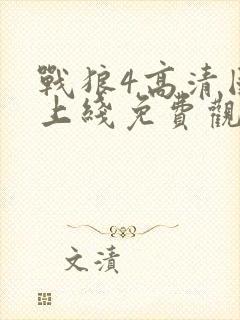 戰狼4高清
上綫免費觀
文漬